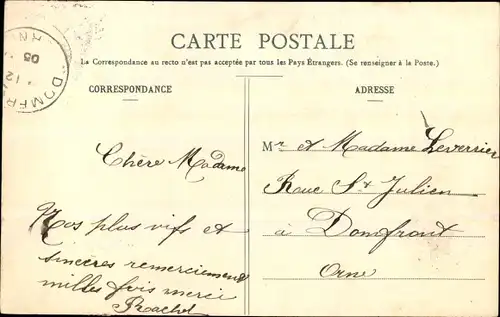 CARTE POSTALE
La Correspondance au recto n'est pas acceptée par tous les Pays Étrangers. (Se renseigner à la Poste.)
CORRESPONDANCE
ADRESSE
DOMFR
12
05
Chère Madame
Nos plus vifs et
sincères remerciement
milles fois merci
Rachel
Mr et Madame Leverrier
Rue St Julien
à Domfront
Orne